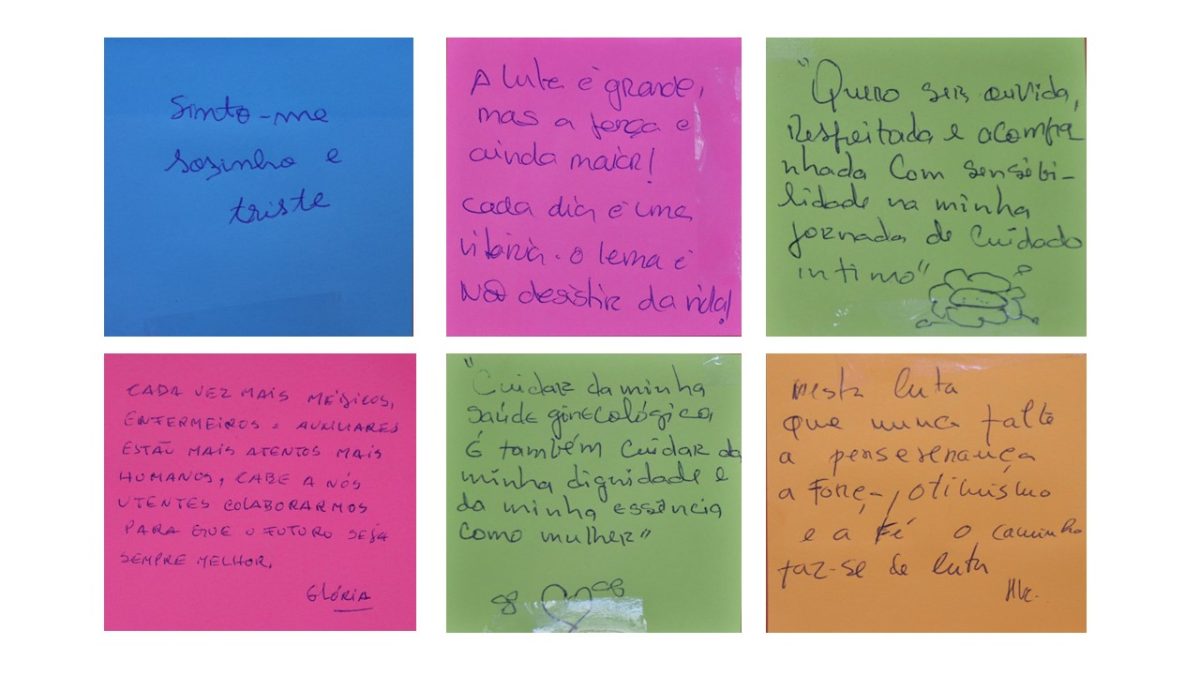 Sinto-me
sozinho e
triste
A luta é grande,
mas a força e
ainda maior!
cada dia é uma
vitória. o lema é
NÃO desistir da vida!
"Quero ser ouvida,
Respeitada e acompa
nhada com sensibi-
lidade na minha
jornada de cuidado
intimo"
CADA VEZ MAIS MÉDICOS,
ENFERMEIROS E AUXILIARES
ESTÃO MAIS ATENTOS MAIS
HUMANOS, CABE A NÓS
UTENTES COLABORARMOS
PARA QUE O FUTURO SEJA
SEMPRE MELHOR.
GLÓRIA
"Cuidar da minha
saúde ginecológica,
É também cuidar da
minha dignidade e
da minha essência
como mulher"
nesta luta
que nunca falte
a perseverança
a Força, otimismo
e a Fé o caminho
faz-se de luta